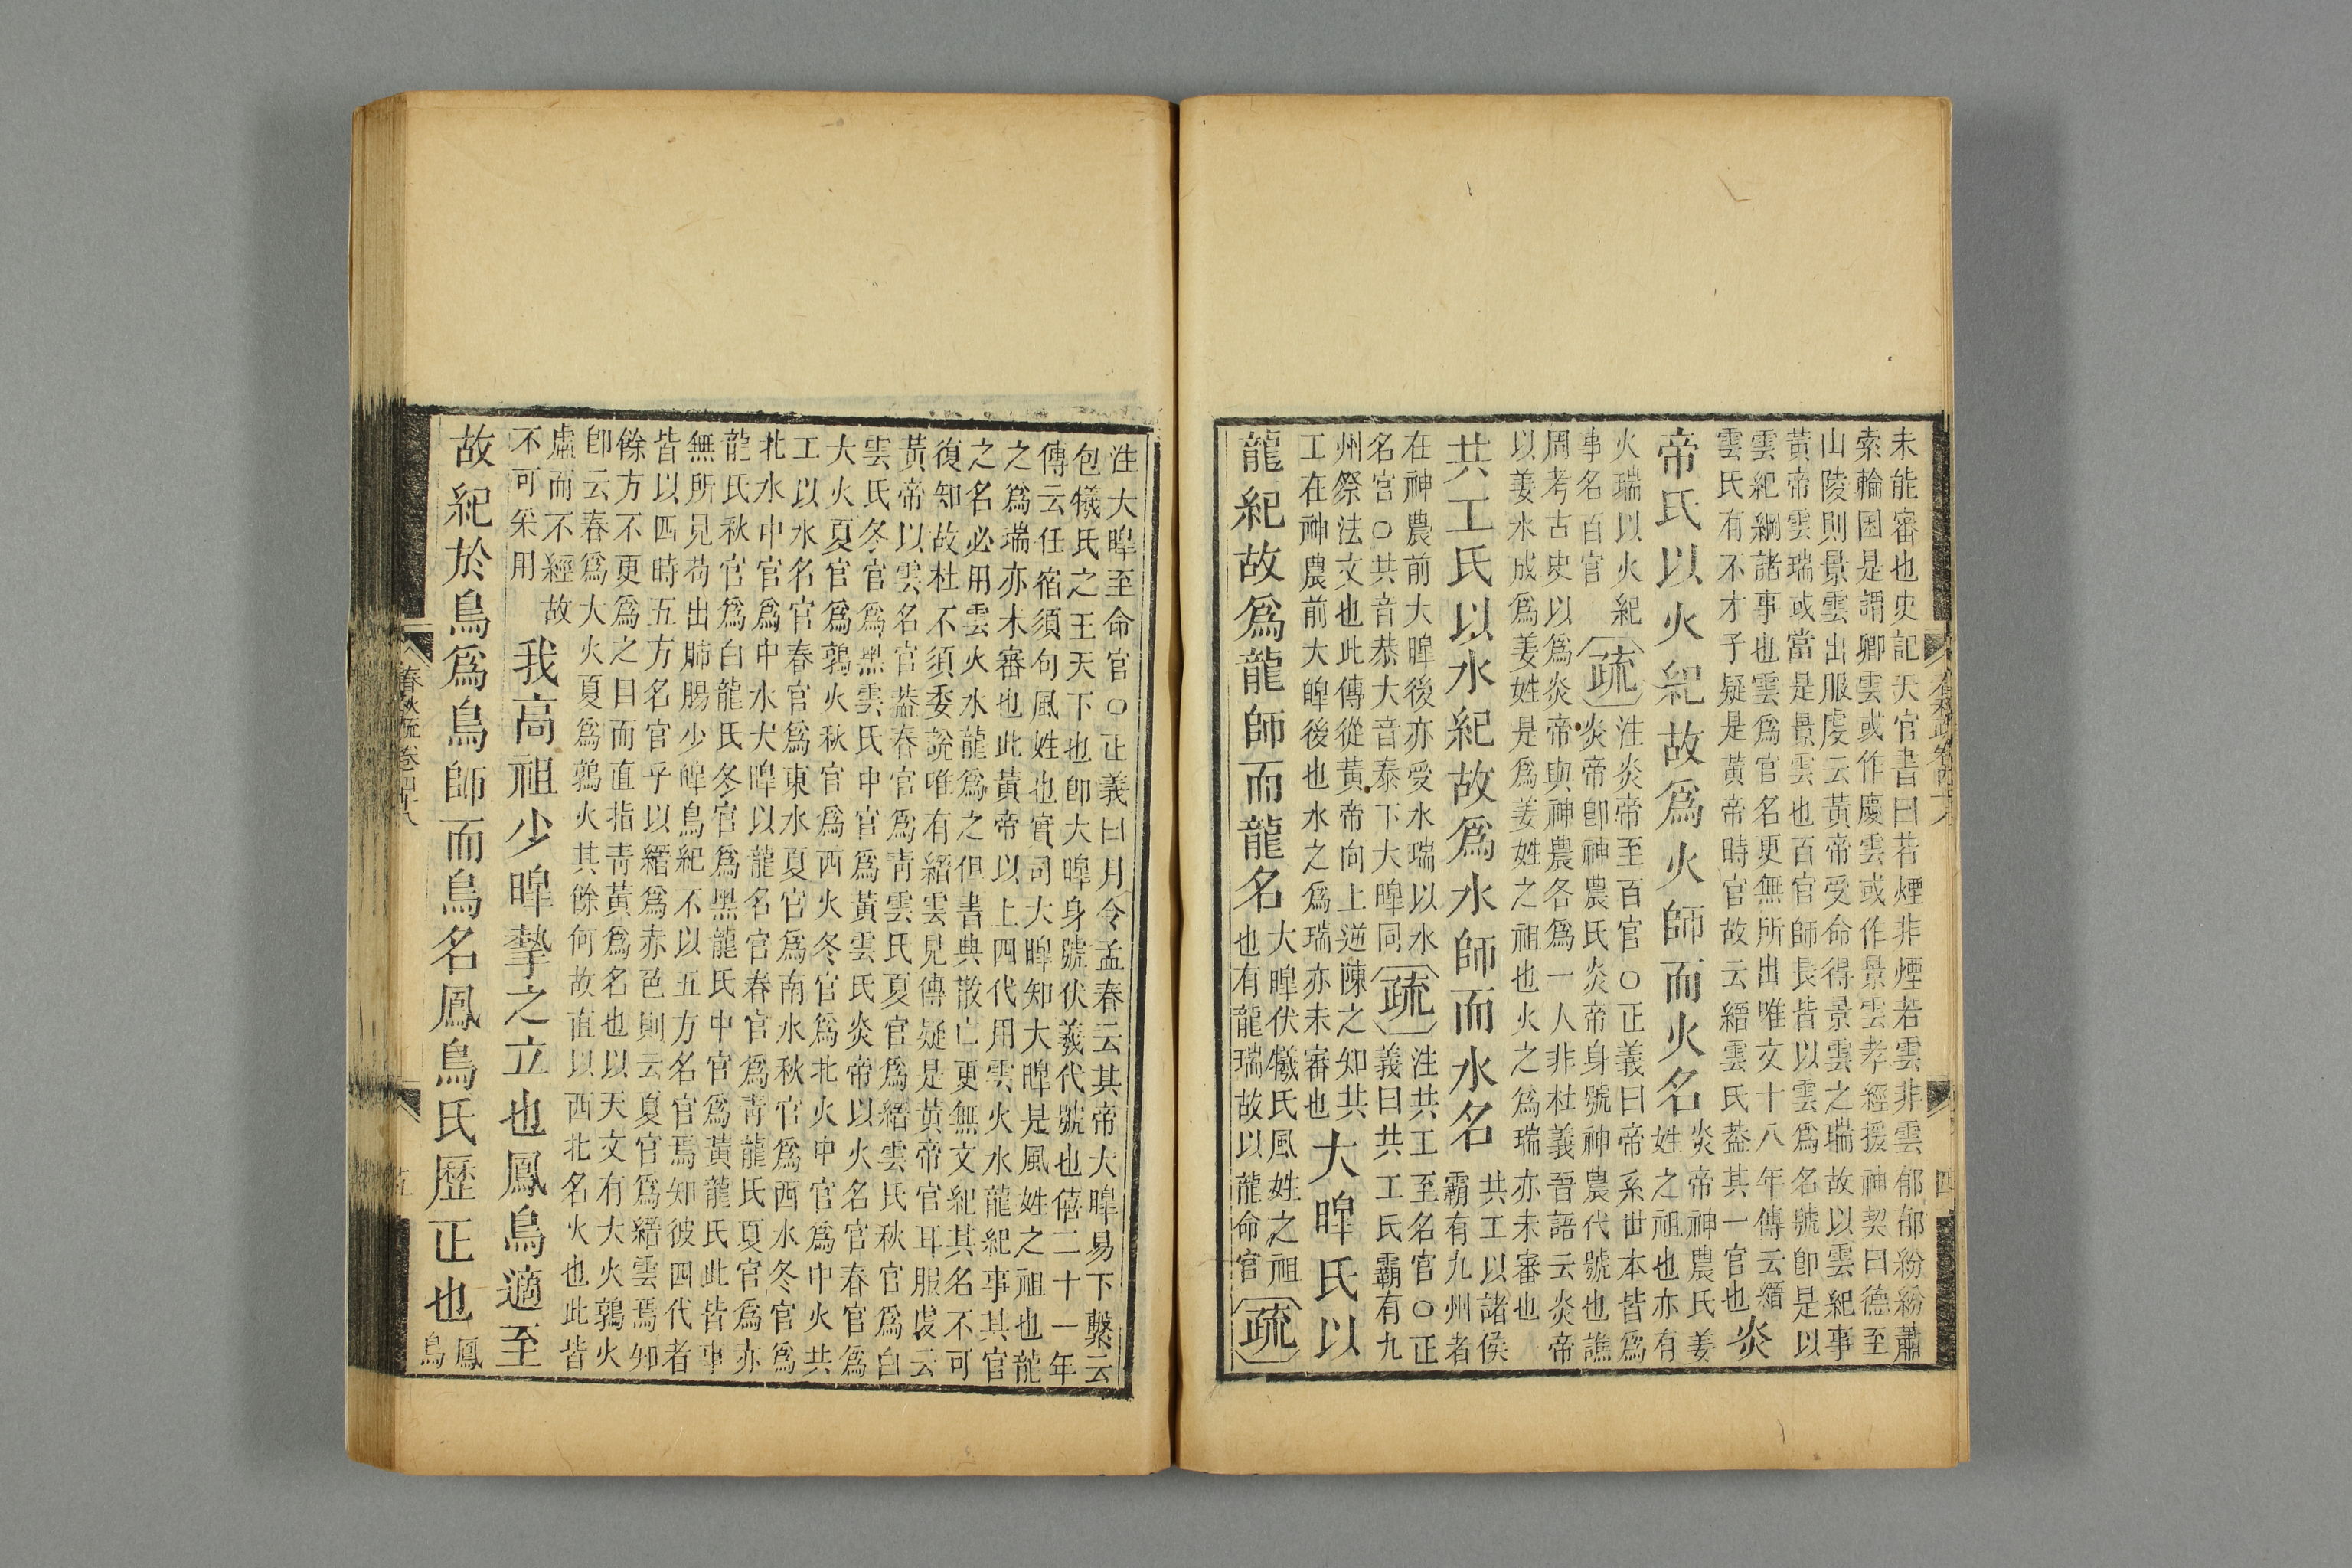 未能審也史記天官書曰若煙非煙若雲非雲郁郁紛紛蕭
索輪囷是謂卿雲或作慶雲或作景雲孝經援神契曰德至
山陵則景雲出服虔云黃帝受命得景雲之瑞故以雲紀事
黃帝雲瑞或當是景雲也百官師長皆以雲爲名號卽是以
雲紀綱諸事也雲爲官名更無所出唯文十八年傳云縉
雲氏有不才子疑是黃帝時官故云縉雲氏葢其一官也
炎
帝氏以火紀故爲火師而火名
炎帝神農氏姜
姓之祖也亦有
火瑞以火紀
事名百官
疏
注炎帝至百官○正義曰帝系世本皆爲
炎帝卽神農氏炎帝身號神農代號也譙
周考古史以爲炎帝與神農各爲一人非杜義晉語云炎帝
以姜水成爲姜姓是爲姜姓之祖也火之爲瑞亦未審也
共工氏以水紀故爲水師而水名
共工以諸侯
霸有九州者
在神農前大皥後亦受水瑞以水
名官○共音恭大音泰下大皥同
疏
注共工至名官○正
義曰共工氏霸有九
州祭法文也此傳從黃帝向上逆陳之知共
工在神農前大皥後也水之爲瑞亦未審也
大皥氏以
龍紀故爲龍師而龍名
大皥伏犧氏風姓之祖
也有龍瑞故以龍命官
疏
注大皥至命官○正義曰月令孟春云其帝大皥易下繫云
包犧氏之王天下也卽大皥身號伏羲代號也僖二十一年
傳云任宿須句風姓也實司大皥知大皥是風姓之祖也龍
之爲瑞亦未審也此黃帝以上四代用雲火水龍紀事其官
之名必用雲火水龍爲之但書典散亡更無文紀其名不可
復知故杜不須委說唯有縉雲見傳疑是黃帝官耳服虔云
黃帝以雲名官葢春官爲靑雲氏夏官爲縉雲氏秋官爲白
雲氏冬官爲黑雲氏中官爲黃雲氏炎帝以火名官春官爲
大火夏官爲鶉火秋官爲西火冬官爲北火中官爲中火共
工以水名官春官爲東水夏官爲南水秋官爲西水冬官爲
北水中官爲中水大皥以龍名官春官爲靑龍氏夏官爲赤
龍氏秋官爲白龍氏冬官爲黑龍氏中官爲黃龍氏此皆事
無所見苟出肺腸少皥鳥紀不以五方名官焉知彼四代者
皆以四時五方名官乎以縉爲赤色則云夏官爲縉雲焉知
餘方不更爲之目而直指靑黃爲名也以天文有大火鶉火
卽云春爲大火夏爲鶉火其餘何故直以西北名火也此皆
虛而不經故
不可采用
我高祖少皥摯之立也鳳鳥適至
故紀於鳥爲鳥師而鳥名鳳鳥氏歷正也
鳳
鳥
春秋疏卷四十八
五